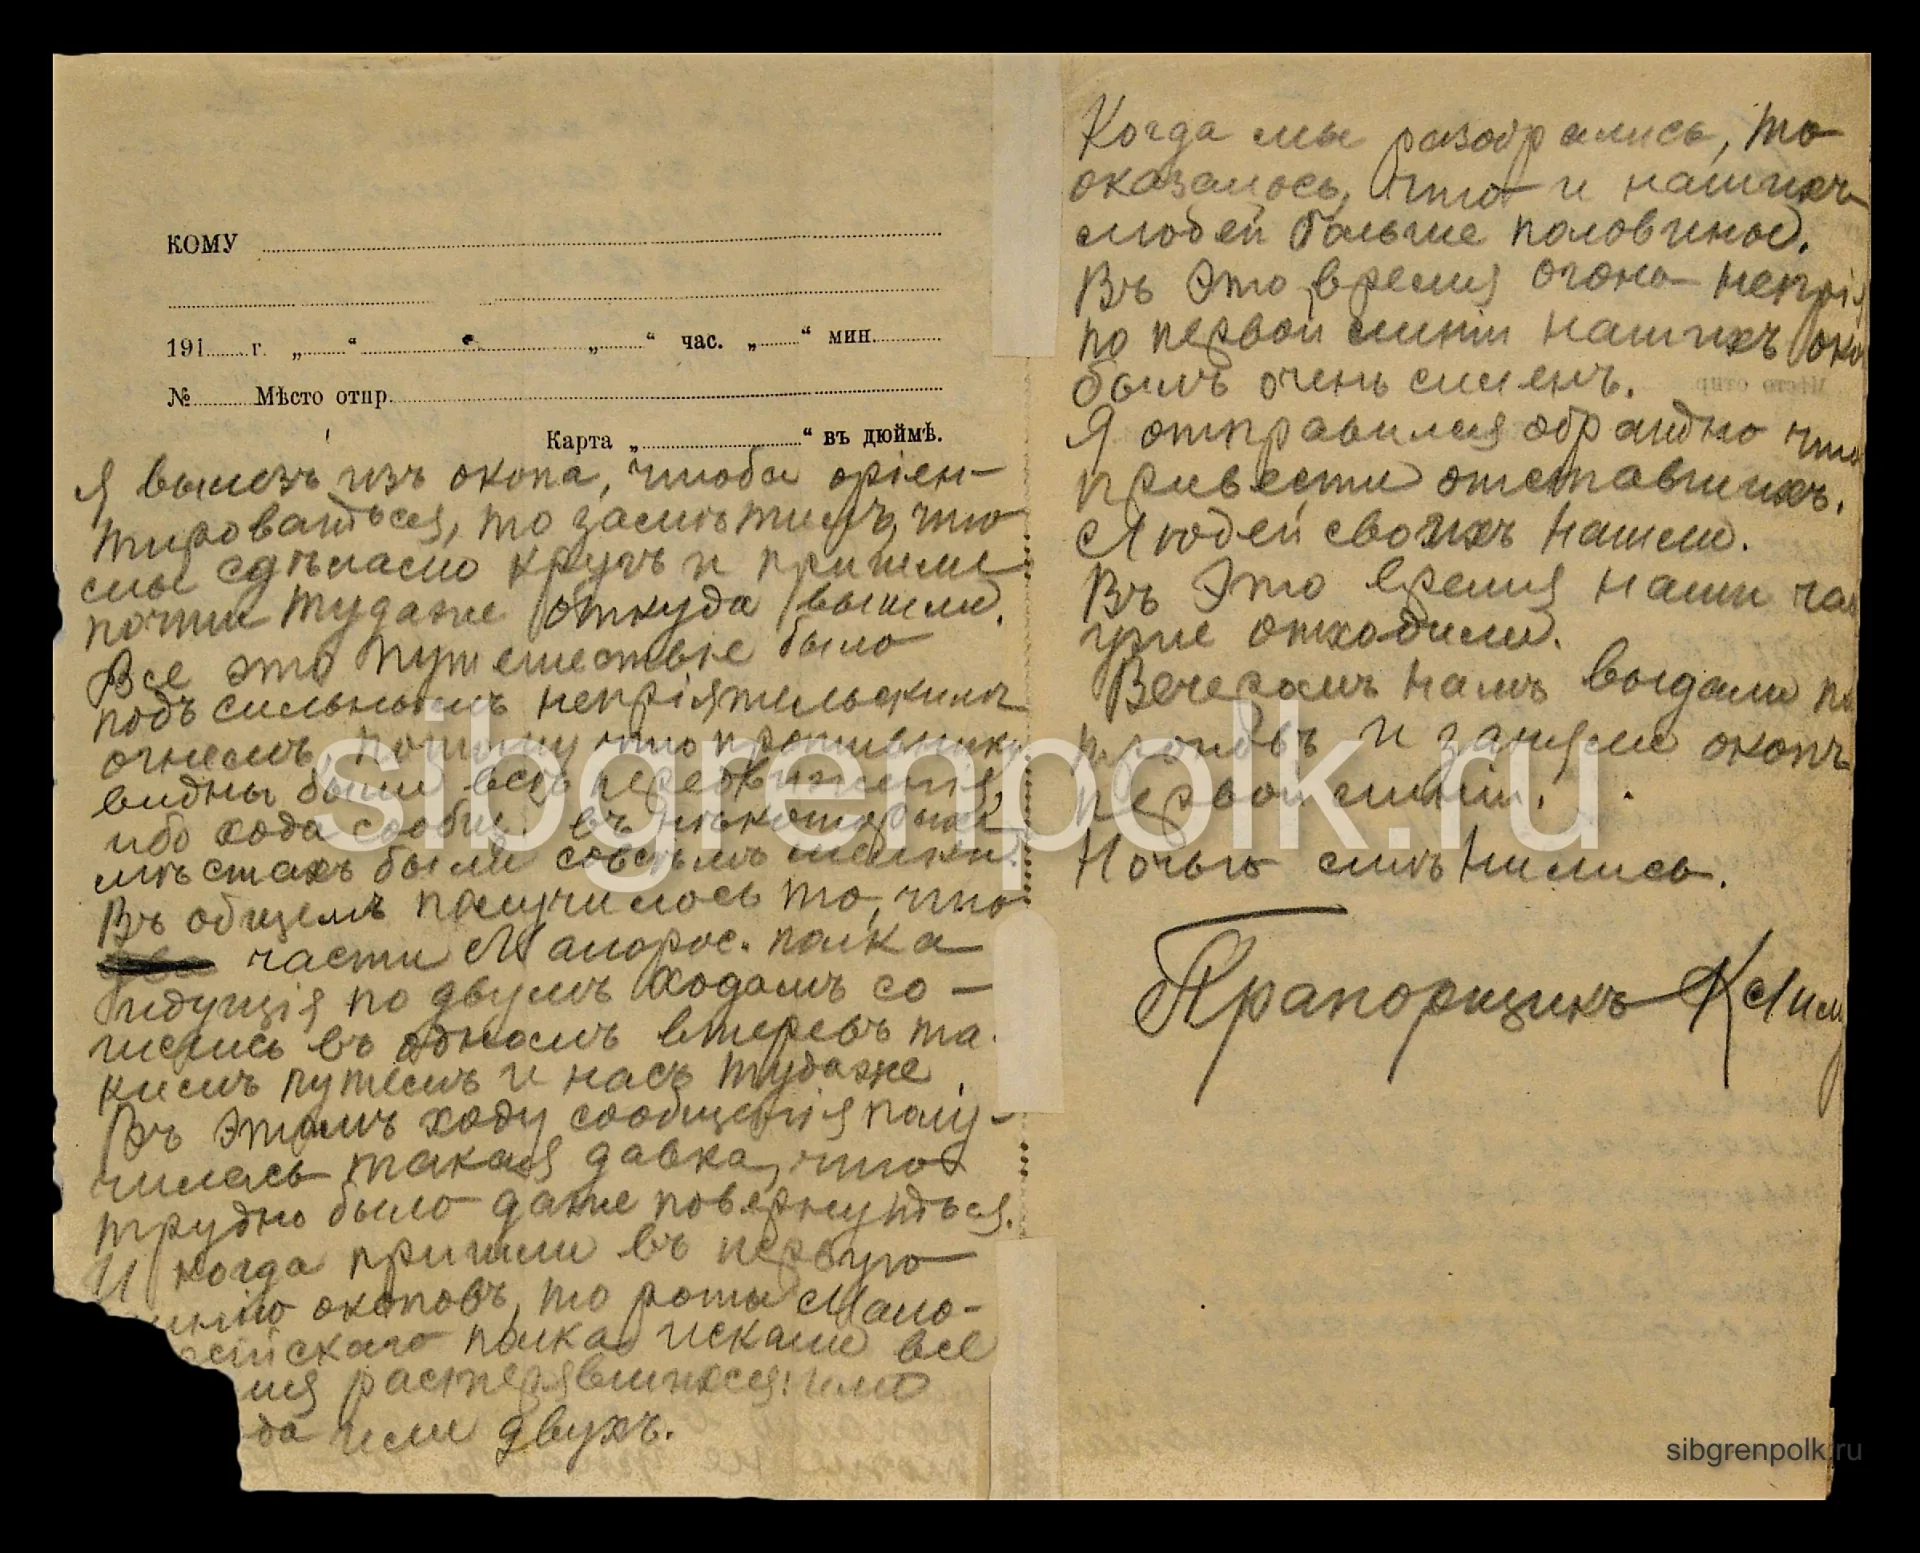 КОМУ
191 г. „ “ „ “ час. „ “ мин.
№ Мѣсто отпр.
Карта „ “ въ дюймѣ.
Я вылезъ изъ окопа, чтобы оріен-
тироваться, то замѣтилъ, что
мы сдѣлали кругъ и пришли
почти туда же откуда вышли.
Все это путешествіе было
подъ сильнымъ непріятельскимъ
огнемъ, потому что противнику
видны были всѣ передвиженія,
ибо хода сообщ. въ нѣкоторыхъ
мѣстахъ были совсѣмъ мелки.
Въ общемъ получилось то, что
части Малорос. полка
идущія по двумъ ходамъ со-
шлись въ одномъ
кимъ путемъ и насъ туда же.
Въ этомъ ходу сообщенія полу-
чилась такая давка, что
трудно было даже повернуться.
И когда пришли въ первую
линію окоповъ, то роты Мало-
сійскаго полка искали все
растерявшихся: или
да или двухъ.
Когда мы разобрались, то
оказалось, что и нашихъ
людей больше половиной.
Въ это время огонь непрія
по первой линіи нашихъ око
былъ очень силенъ.
Я отправился обратно что
привести отставшихъ.
Людей своихъ нашли.
Въ это время наши ча
уже отходили.
Вечеромъ намъ выдали па
троновъ и заняли окопъ
первой линіи.
Ночью смѣнились.
Прапорщикъ К Лим
sibgrenpolk.ru
sibgrenpolk.ru